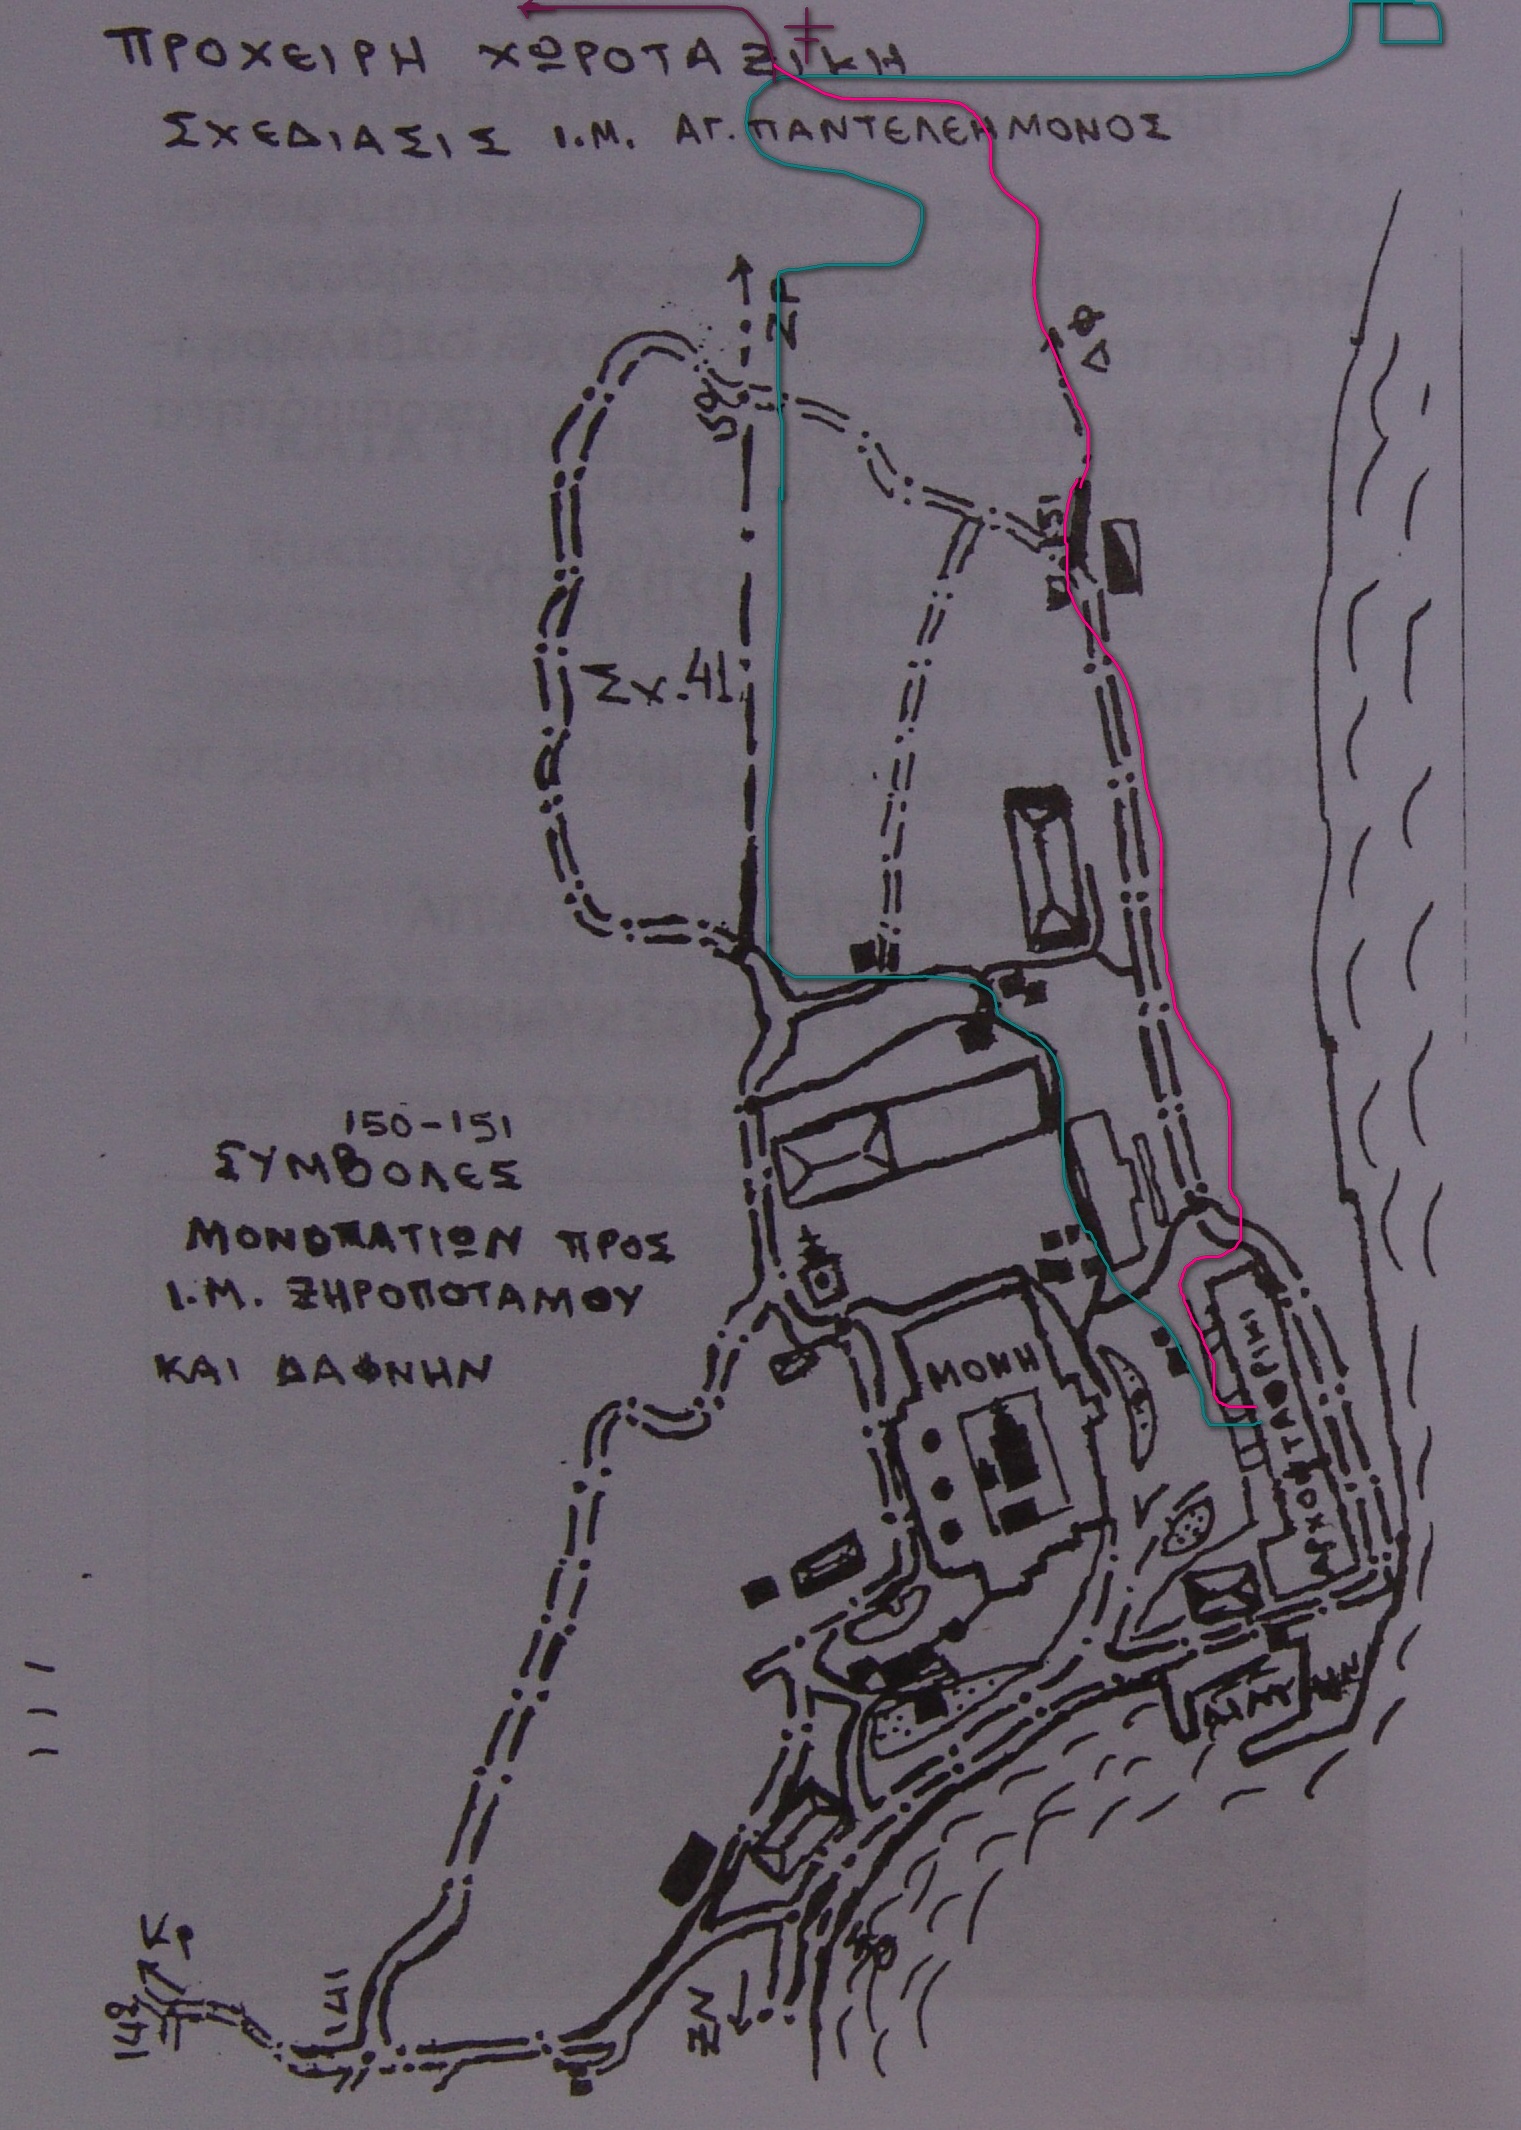 ΠΡΟΧΕΙΡΗ ΧΩΡΟΤΑΞΙΚΗ
ΣΧΕΔΙΑΣΙΣ Ι.Μ. ΑΓ. ΠΑΝΤΕΛΕΗΜΟΝΟΣ
ΔΦ
151
Σχ. 41
150-151
ΣΥΜΒΟΛΕΣ
ΜΟΝΟΠΑΤΙΩΝ ΠΡΟΣ
Ι.Μ. ΞΗΡΟΠΟΤΑΜΟΥ
ΚΑΙ ΔΑΦΝΗΝ
ΜΟΝΗ
ΑΡΧΟΝΤΑΡΙΚΙ
Κρ
141
142
ΖΝ